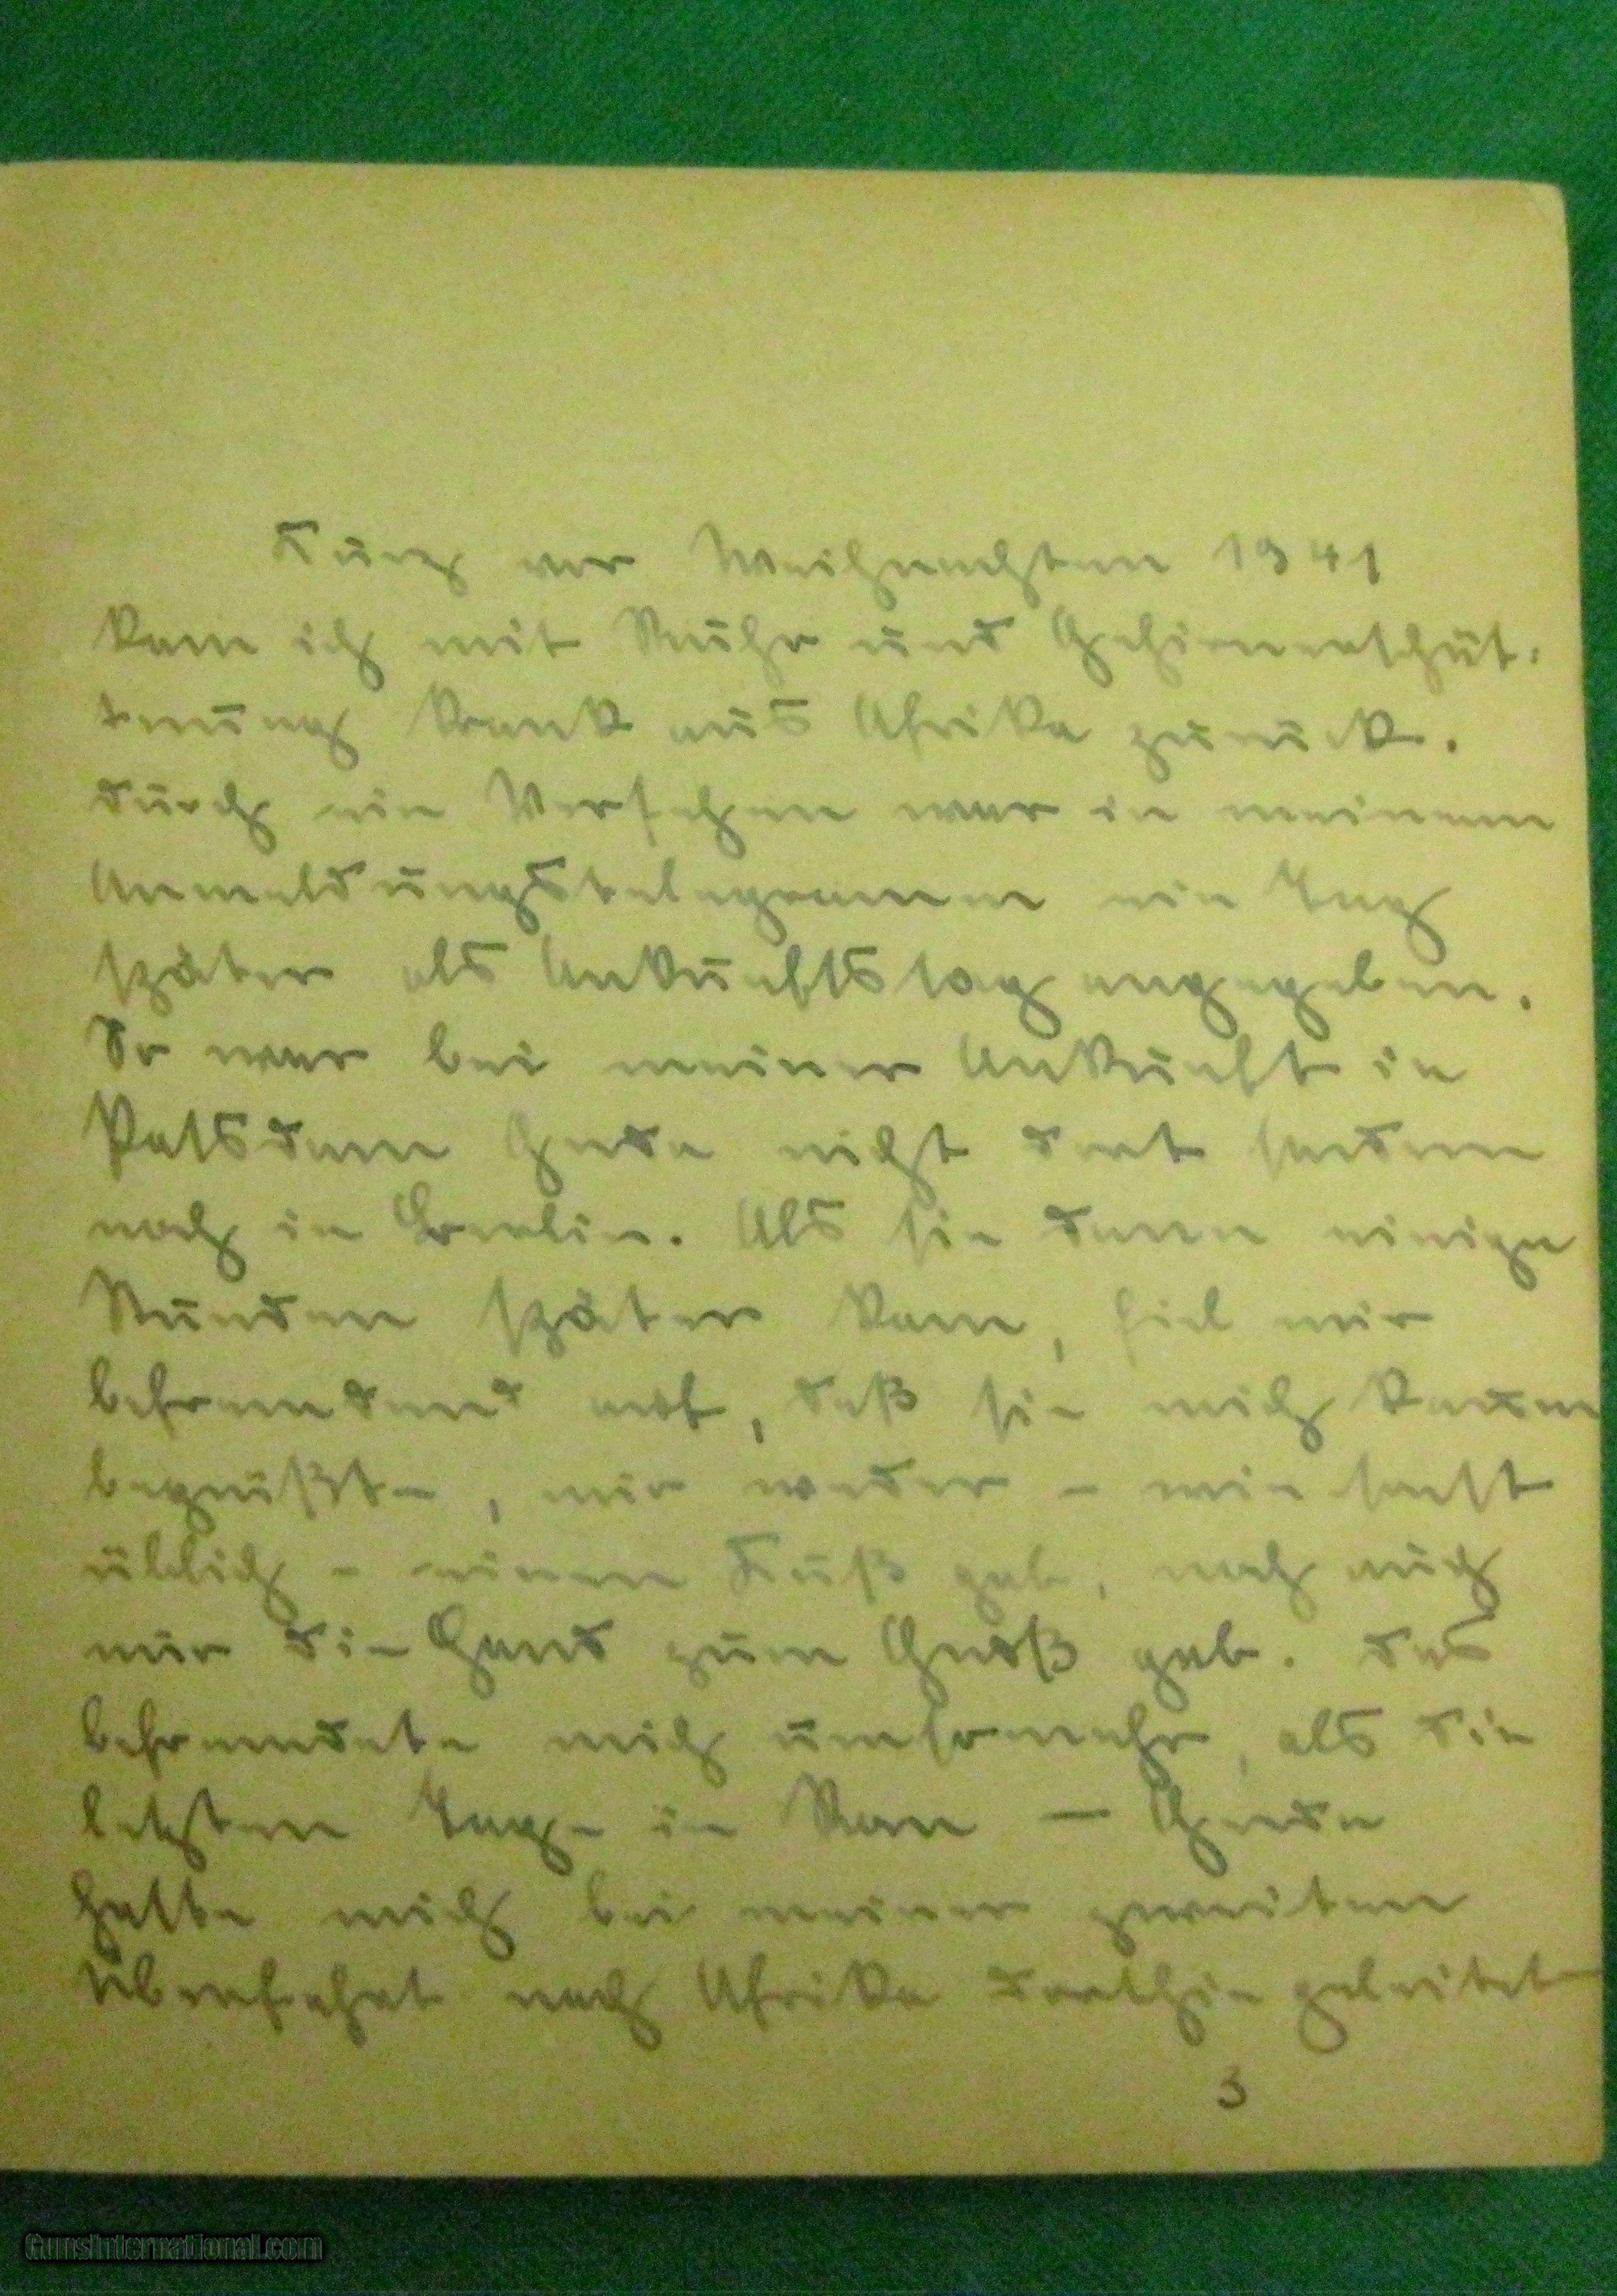 Kurz vor Weihnachten 1941
kam ich mit Ruhr und Gehirnerschüt-
terung krank aus Afrika zurück.
Durch ein Versehen war in meinem
Anmeldungstelegramm ein Tag
später als Ankunftstag angegeben.
So war bei meiner Ankunft in
Potsdam Gerda nicht dort sondern
noch in Berlin. Als sie dann einige
Stunden später kam, fiel mir
befremdend auf, daß sie mich kaum
begrüßte, mir weder - wie sonst
üblich - einen Kuß gab, noch auch
nur die Hand zum Gruß gab. Das
befremdete mich umsomehr, als die
letzten Tage in Rom — Gerda
hatte mich bei meiner zweiten
Überfahrt nach Afrika dorthin geleitet
3
GunsInternational.com